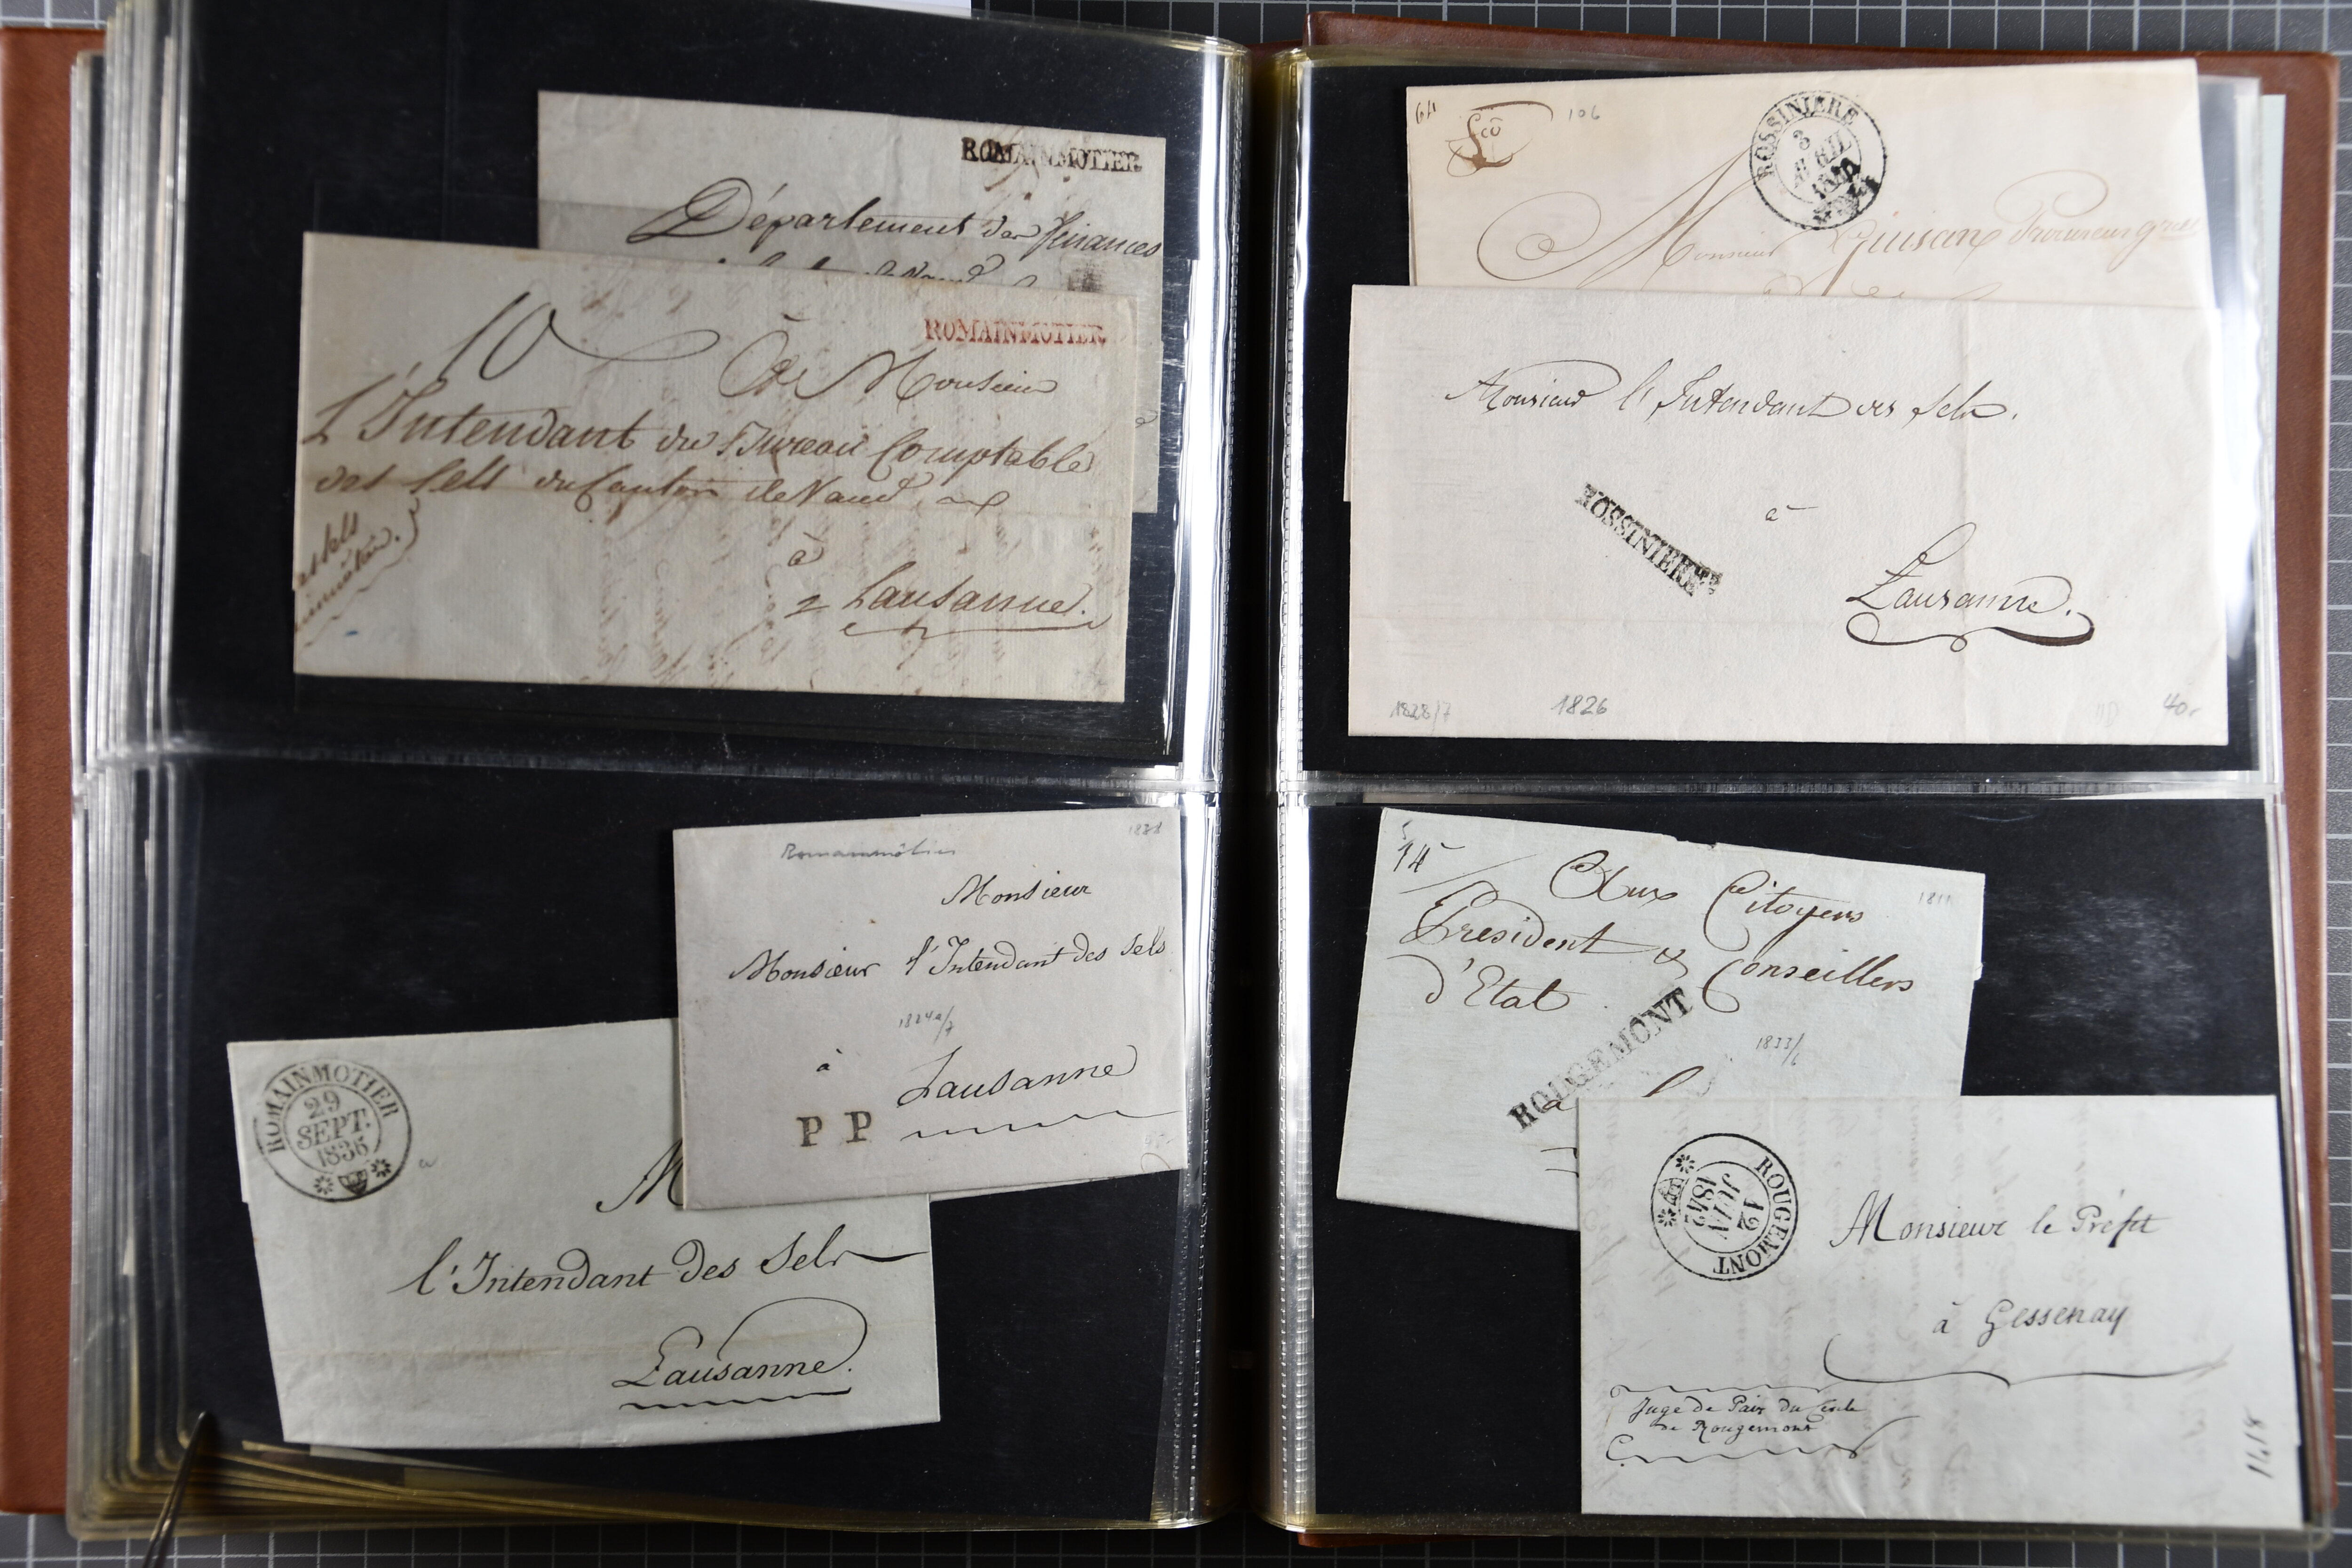 ROMAINMOTIER
Département des finances
10
ROMAINMOTIER
A Monsieur
L'Intendant du Bureau Comptable
des Sels du Canton de Vaud
à
2 Lausanne.
1828
Romainmôtier
Monsieur
Monsieur l'Intendant des Sels
1824a/7
à
Lausanne
P P
ROMAINMOTIER
29
SEPT.
1835
M
l'Intendant des Sels
Lausanne.
64
fco
106
ROSSINIERE
3
AVRIL
1840
Monsieur Guisan Procureur gral
Monsieur l'Intendant des Sels.
ROSSINIERE
à
Lausanne.
1828/7
1826
40.-
14
1811
Aux Citoyens
Président & Conseillers
d'Etat
ROUGEMONT
1833/6
a
ROUGEMONT
12
JUIN
1842
Monsieur le Préfet
à Gessenay
Juge de Paix du Cercle
de Rougemont
1618